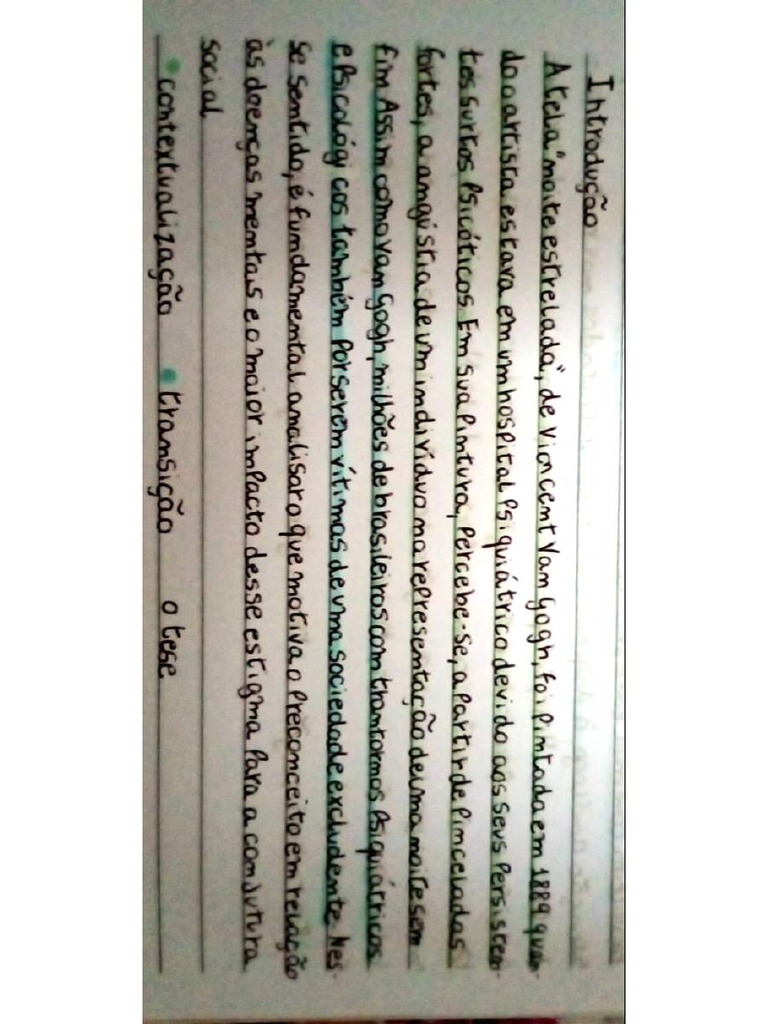 Introdução
A tela "noite estrelada", de Vincent Van Gogh, foi pintada em 1889 quan-
do o artista estava em um hospital psiquiátrico devido aos seus persisten-
tes surtos psicóticos. Em sua pintura, percebe-se, a partir de pinceladas
fortes, a angústia de um indivíduo na representação de uma noite sem
fim. Assim como Van Gogh, milhões de brasileiros com trantornos psiquiátricos
e psicológicos também por serem vítimas de uma sociedade excludente. Nes-
se sentido, é fundamental analisar o que motiva o preconceito em relação
às doenças mentais e o maior impacto desse estigma para a conjutura
social
contextualização transição o tese